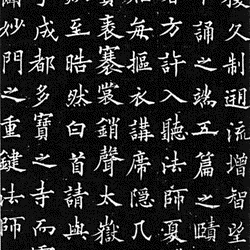 久制迴流增智
誦之端五篇之賾
方許入聽法師夏
每摳衣講席隱几
褰裳銷聲太嶽
至晧然白首請與
成都多寶之寺而
妙門之重鍵法師